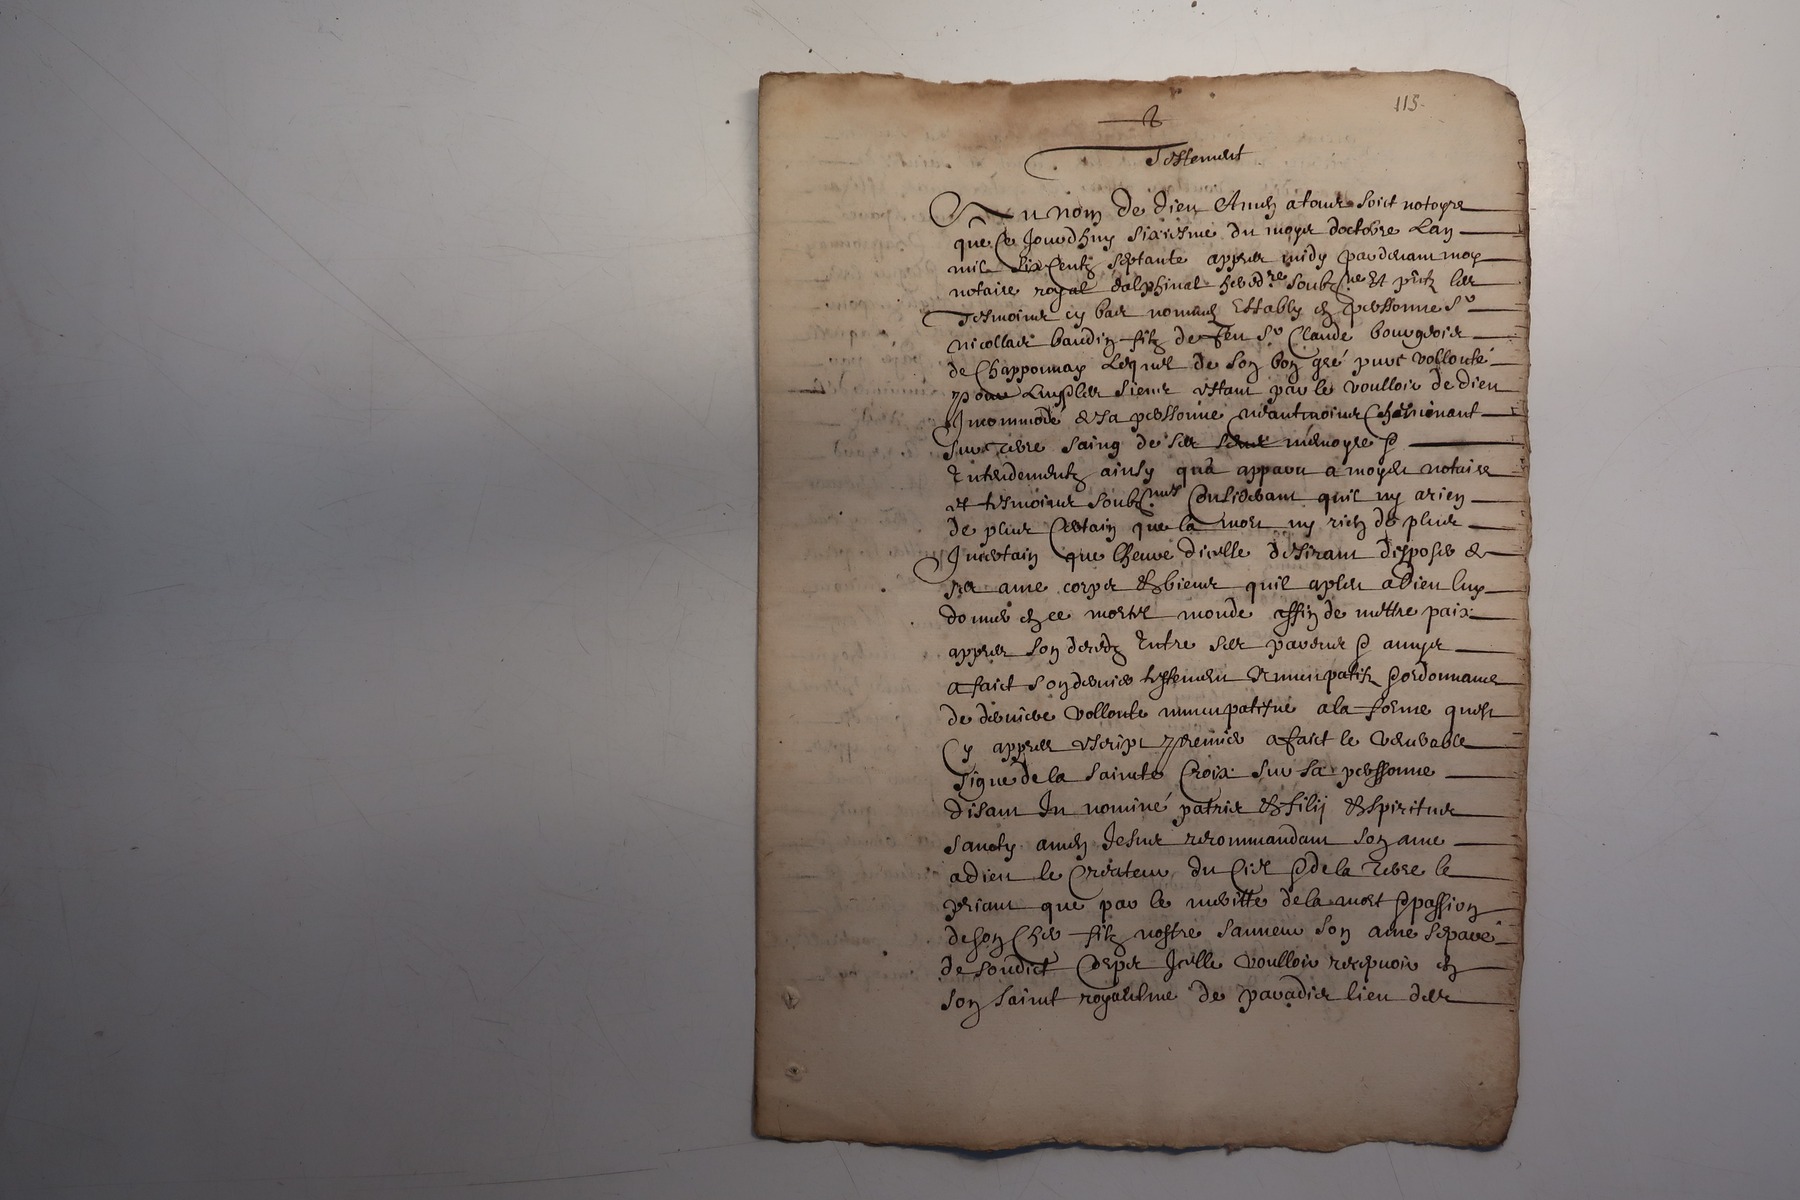 115
Testement
Au nom de dieu Amen a tous soict notoyre
que ce Jourdhuy sixiesme du moys doctobre Lan
mil six centz septante appres midy pardevant moy
notaire royal dalphinal hered.re soubz.ne et pntz les
Tesmoins cy bas nommes Estably en personne Sr
nicollas baudin filz de feu Sr Claude bourgeois
de Chapponnay Lequel de son bon gré pure vollonté
estant par le voulloir de dieu
Incommodé de sa personne neantmoins cheminant
sur terre saing de ses memoyre &
Entendementz ainsy qua apparu a moydt notaire
et tesmoins soubz.nes Considerant quil ny a rien
de plus Certain que la mort ny rien de plus
Incertain que lheure dicelle desirant disposer de
ses ame corps & biens quil a pleu a Dieu luy
donner en ce mortel monde affin de mettre paix
appres son deces Entre ses parens & amys
a faict son dernier testement nuncupatif & ordonnance
de derniere vollonte nuncupative a la forme quest
Cy appres escript premier a faict le venerable
signe de la sainte Croix sur sa personne
disant In nominé patris & filij & spiritus
sancty amen Jesus recommandant son ame
a dieu le Createur du Ciel & de la terre le
priant que par le meritte de la mort & passion
de son cher filz nostre sauveur son ame separé
de sondict Corps Icelle voulloir recepvoir en
son saint royaulme de paradis lieu des